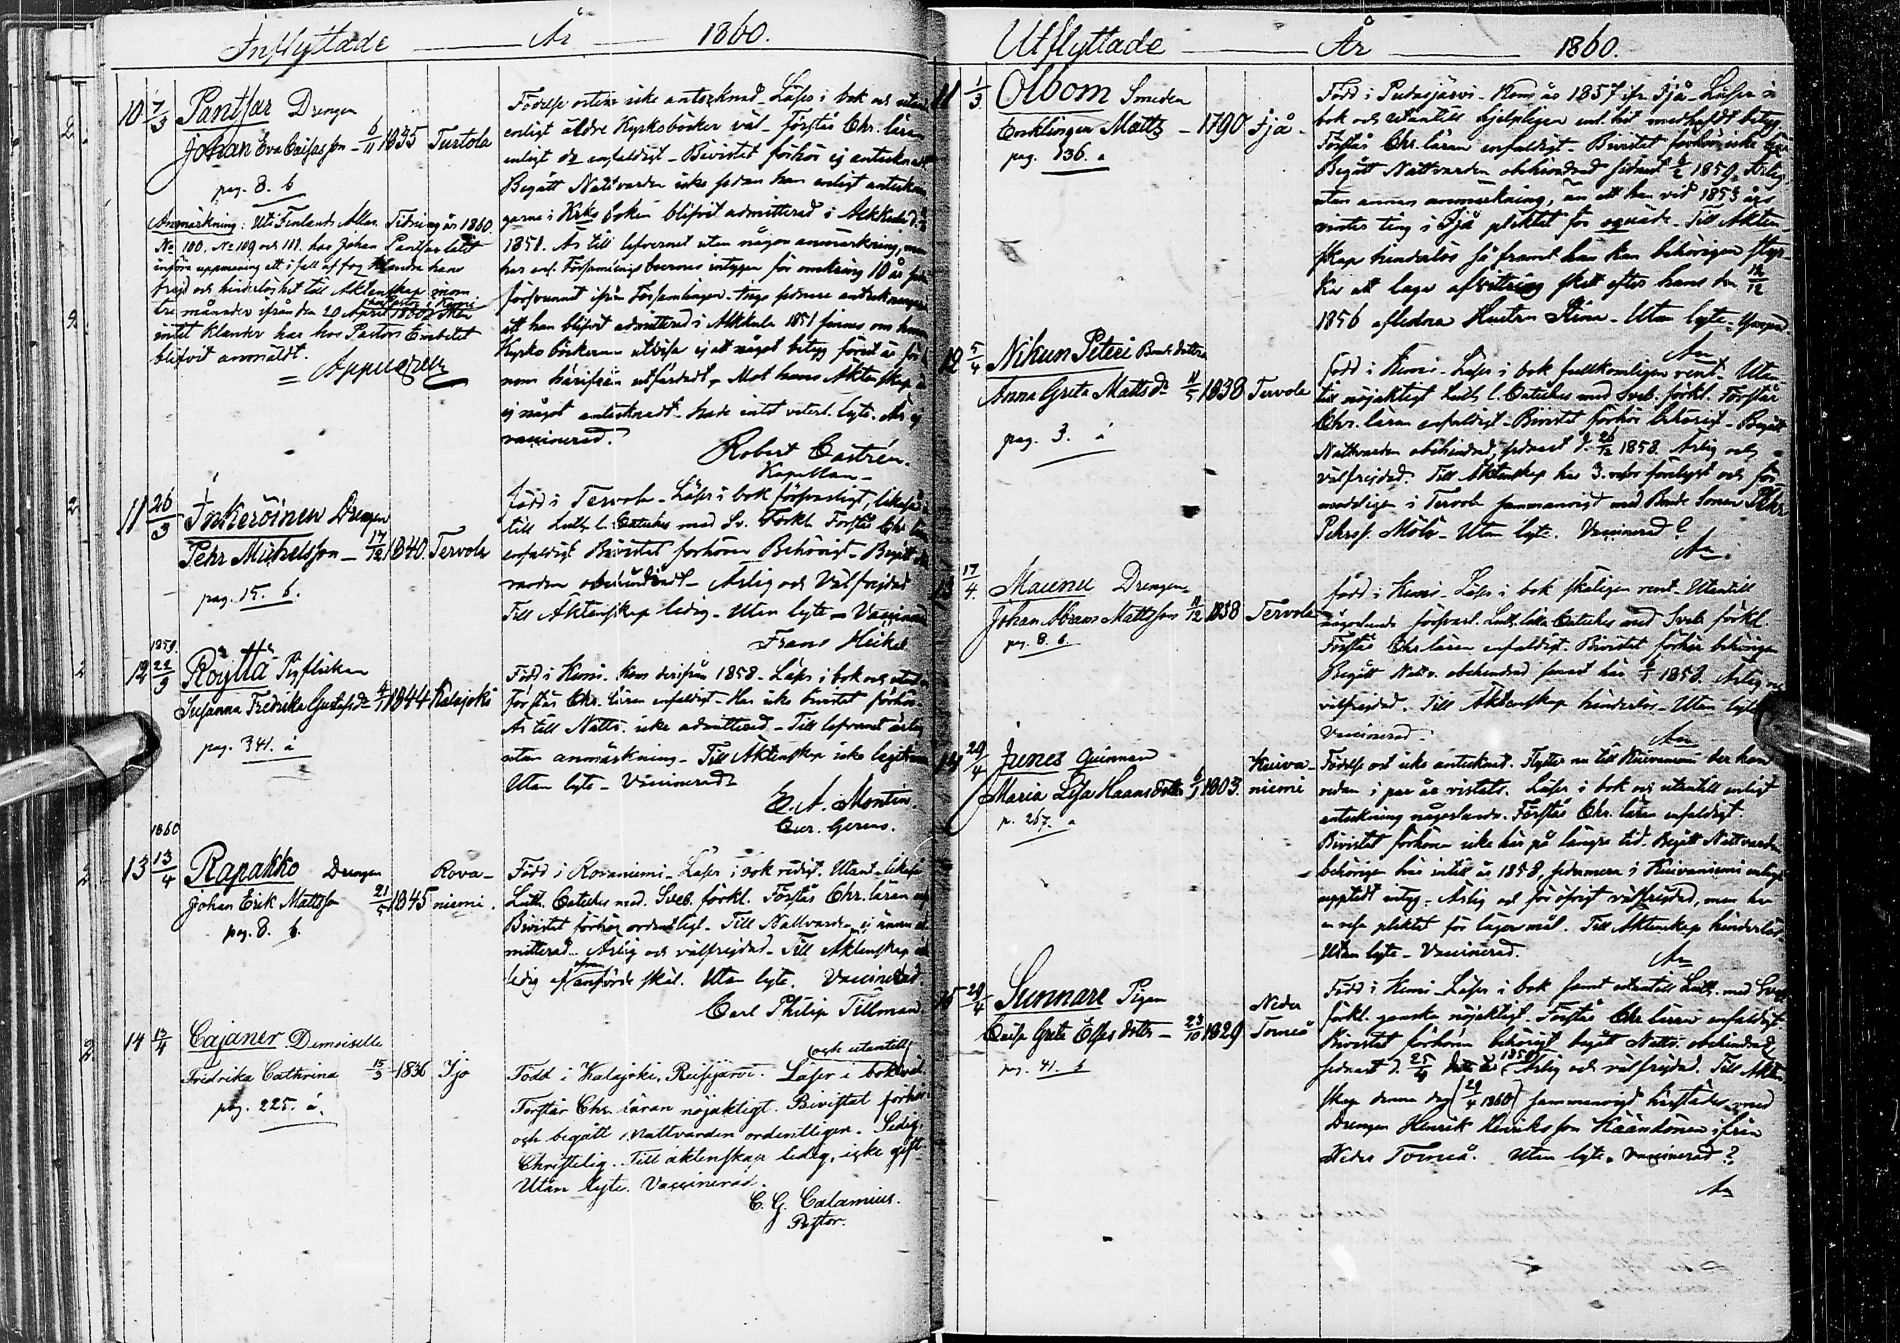 Inflyttade År 1860.
10 7/3 Pantsar Drengen
Johan Eva Caisasson 6/11 1835 Turtola
pag. 8. b
Födelse orten icke antecknad. Läser i bok och utan
enligt äldre Kyrkoböcker väl. Förstår Chr. läran
enligt enfaldigt. Bivistat förhör ej antecknadt
Begått Nattvarden icke sedan han enligt anteckn
garne i Kyrko boken blifvit admitterad i Alkkula d.
1851. Är till lefvernet utan någon anmärkning, men
har enl. Församlings boernes intygan för omkring 10 år sedan
försvunnit ifrån Församlingen. Inga sednare anteckningar
att han blifvit admitterad i Alkkula 1851 finnes om honom
Kyrko böckerna utvisa ej att något betyg förut är för ho
nom härifrån utfärdadt. Mot hans Äktenskap är
ej något antecknadt. hade intet vitert. lyte. Är ej
vaccinerad.
Robert Castrén.
Kapellan
Anmärkning: Uti Finlands Allm. Tidning år 1860.
No 100, No 109 och 118. har Johan Pantsar låtit
införa uppmaning att i fall af fog klandra hans
frejd och hinderlöshet till Äktenskap inom
tre månader ifrån den 20 April 1860 hos Pastor i Kemi
intet klander har hos Pastors Embetet
blifvit anmäldt.
Appelgren
11 26/3 Inkeröinen Drengen
Pehr Michelsson 17/12 1840. Tervola
pag. 15. b.
Född i Tervola. Läser i bok försvarligt, likaså u
till Luth. l. Cateches med Sv. Förkl. Förstår Chr. läran
enfaldigt Bivistat förhören Behörigt. Begått Na
varden obehindradt. Ärlig och Välfrejdad
Till Äktenskap ledig. Utan lyte. Vaccinerad
Frans Heikel
1859.
12 22/3 Röyttä Pigflickan
Susanna Fredrika Gustafsdr 1844 Kalajoki
pag. 341. a
Född i Kemi. Kom derifrån 1858. Läser i bok och utan
Förstår Chr. läran enfaldigt. Har icke bivistat förhör
Är till Nattv. icke admitterad. Till lefvernet ärlig
utan anmärkning. Till Äktenskap icke legitim
Utan lyte. Vaccinerad
E. A. Montin.
Cur. Gerens.
1860
13 13/4 Rapakko Drengen
Johan Erik Mattsson 21/5 1845 Rova-
niemi.
pag. 8. b.
Född i Rovaniemi. Läser i bok redigt. Utant. likaså
Luth. Cateches med Sveb. förkl. Förstår Chr. läran enf
Bivistat förhör ordentligt. Till Nattvarden ej ännu ad
mitterad. Ärlig och välfrejdad. Till Äktenskap
ledig af ofvan anförde skäl. Utan lyte. Vaccinerad
Carl Philip Tillman.
14 13/4 Cajaner Demoiselle
Fredrika Cathrina 15/3 1836 Ijo
pag. 225. a.
Född i Kalajoki, Reisjärvi. Läser i bok och utantill väl.
Förstår Chr. läran nöjaktigt. Bivistat förhör
och begått Nattvarden ordentligen. Sedig,
Christelig. Till äktenskap ledig, icke gift
Utan lyte. Vaccinerad.
C. G. Calamnius.
Pastor.
Utflyttade År 1860.
11 1/3 Olbom Smeden
Enklingen Matts 1790 Ijå
pag. 136. a
Född i Pudasjärvi. Kom år 1857 ifr. Ijå. Läser i
bok och utantill hjelpligen enl. hit medhafdt betyg
Förstår Chr. läran enfaldigt. Bivistat förhör icke här
Begått Nattvarden obehindrad sednast 1859. Ärlig
utan annan anmärkning, än att han vid 1853 års
vinter ting i Ijå pliktat för oqvad. Till Äkten
skap hinderlös så framt han kan behörigen styr
ka att laga afvittring skett efter hans den 12/12
1856 aflidna Hustru Stina. Utan lyte.
An
12 5/4 Nikun Peteri Bonde dottern
Anna Greta Mattsdr 11/5 1838 Tervola
pag. 3. a
Född i Kemi. Läser i bok fullkomligen rent. Utan
till nöjaktigt Luth. l. Cateches med Sveb. förkl. Förstår
Chr. läran enfaldigt. Bivistat förhör behörigt. Begått
Nattvarden obehindrad, sednast d. 26/12 1858. Ärlig och
välfrejdad. Till Äktenskap har 3. resor förelyst och för
modeligen i Tervola sammanvigd med Bonde Sonen Pehr
Pehrss. Mölö. Utan lyte. Vaccinerad?
An.
13 17/4 Maunu Drengen
Johan Abram Mattsson 11/12 1838 Tervola
pag. 8. a.
Född i Kemi. Läser i bok skäligen rent. Utantill
någorlunda försvarl. Luth. lilla Cateches med Sveb. förkl.
Förstår Chr. läran enfaldigt. Bivistat förhör behörigen
Begått Nattv. obehindrad senast här 1858. Ärlig och
välfrejdad. Till Äktenskap hinderlös. Utan lyte
Vaccinerad.
An
14 29/4 Junes Qvinnan
Maria Lisa Haans dotter 1803. Kuiva
niemi
p. 267. a
Födelse ort icke antecknad. Flyttar nu till Kuivaniemi der hon
redan i par år vistats. Läser i bok och utantill enligt
anteckning någorlunda. Förstår Chr. läran enfaldigt.
Bivistat förhören icke här på längre tid. Begått Nattvarden
behörigen här intill år 1858, sedermera i Kuivaniemi enligt
uppteedt intyg. Ärlig och för öfrigt välfrejdad, men har
en resa pliktat för lägersmål. Till Äktenskap hinderlös
Utan lyte. Vaccinerad.
An
15 29/4 Sunnare Pigan
Caisa Greta Elfs dotter 23/10 1829 Neder
Torneå
pag. 41. b
Född i Kemi. Läser i bok samt utantill Luth. med Sveb.
förkl. ganska nöjaktigt. Förstår Chr. läran enfaldigt
Bivistat förhören behörigt begått Nattv. obehindrad
sednast d. 25/4 1858. Ärlig och välfrejdad. Till Äkten
skap denna dag (29/4 1860) sammanvigd härstädes med
Drengen Henrik Henriksson Kääntönen ifrån
Neder Torneå. Utan lyte. Vaccinerad?
An